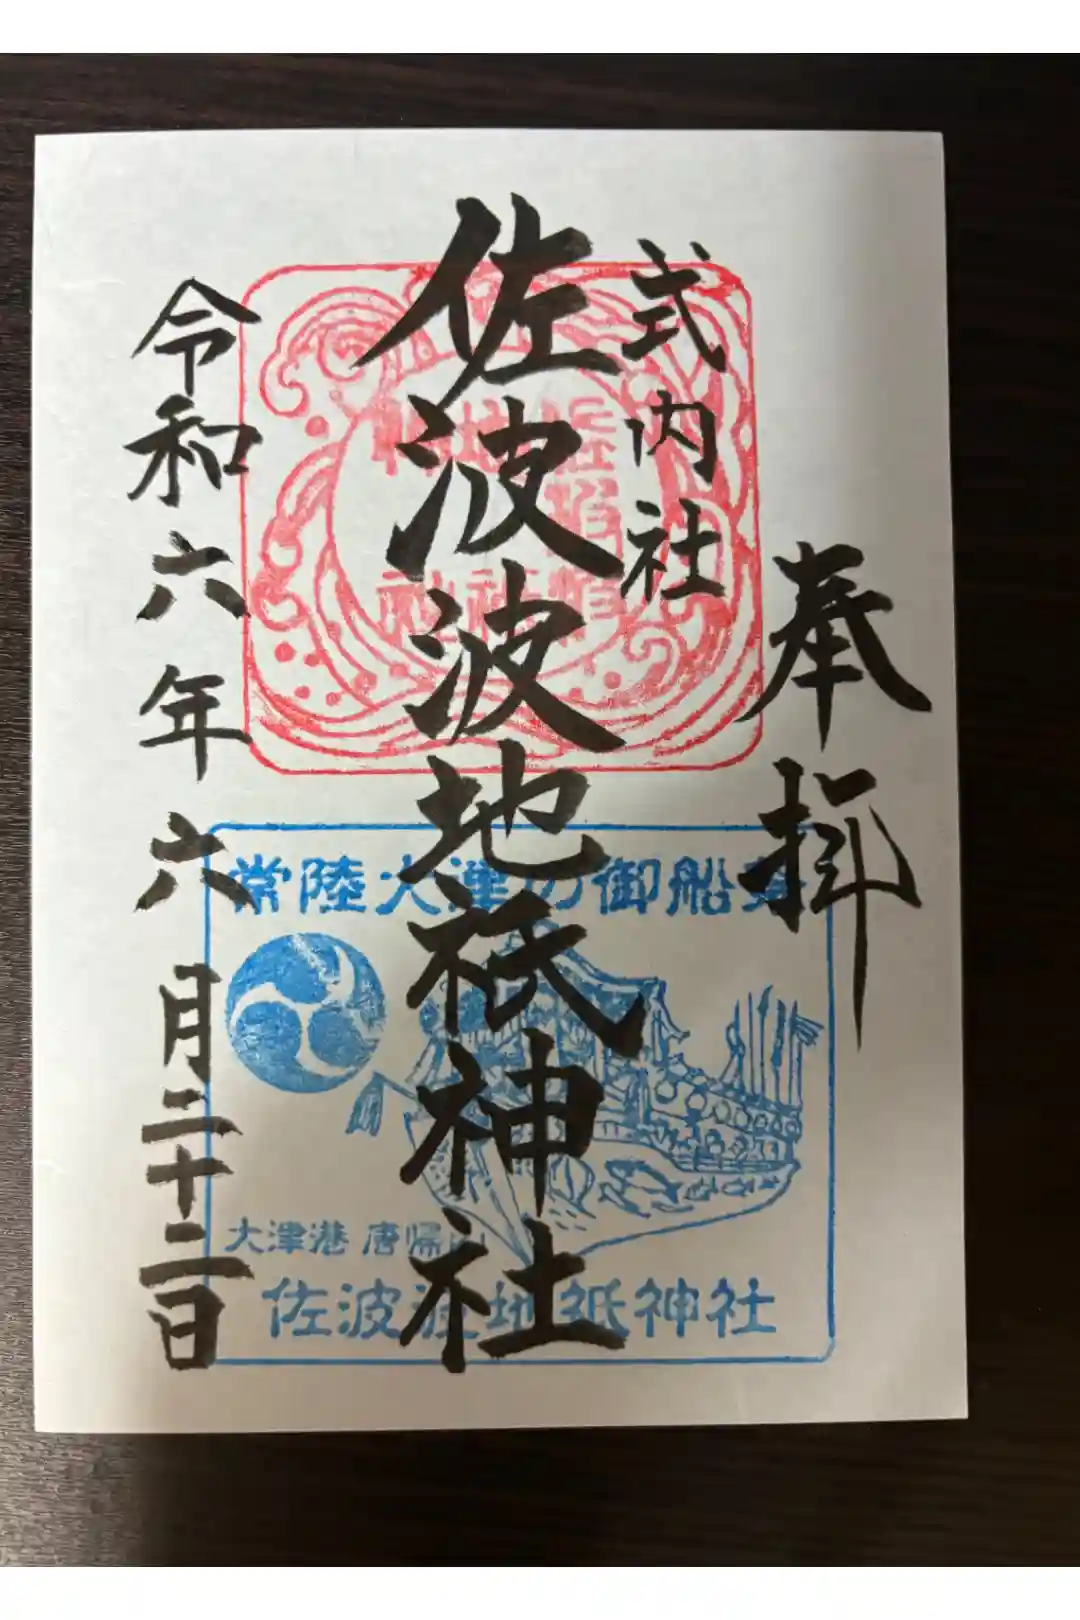 奉拝
式内社
佐波波地祇神社
令和六年六月二十二日
常陸大津の御船祭
大津港 唐帰山
佐波波地祇神社